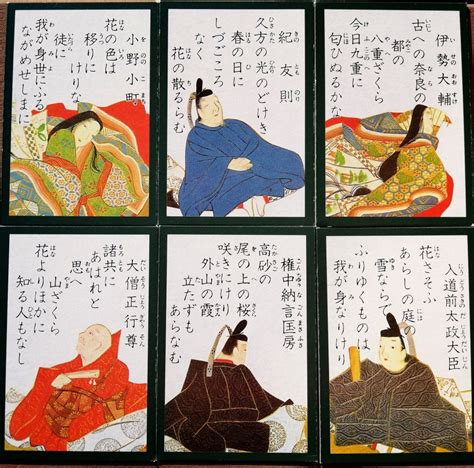 伊勢大輔
古への奈良の
都の
八重ざくら
今日九重に
匂ひぬるかな
紀友則
久方の光のどけき
春の日に
しづごころ
なく
花の散るらむ
小野小町
花の色は
移りに
けりな
徒に
我が身世にふる
ながめせしまに
入道前太政大臣
花さそふ
あらしの庭の
雪ならで
ふりゆくものは
我が身なりけり
権中納言匡房
高砂の
尾の上の桜
咲きにけり
外山の霞
立たずも
あらなむ
大僧正行尊
諸共に
あはれと
思へ
山ざくら
花よりほかに
知る人もなし